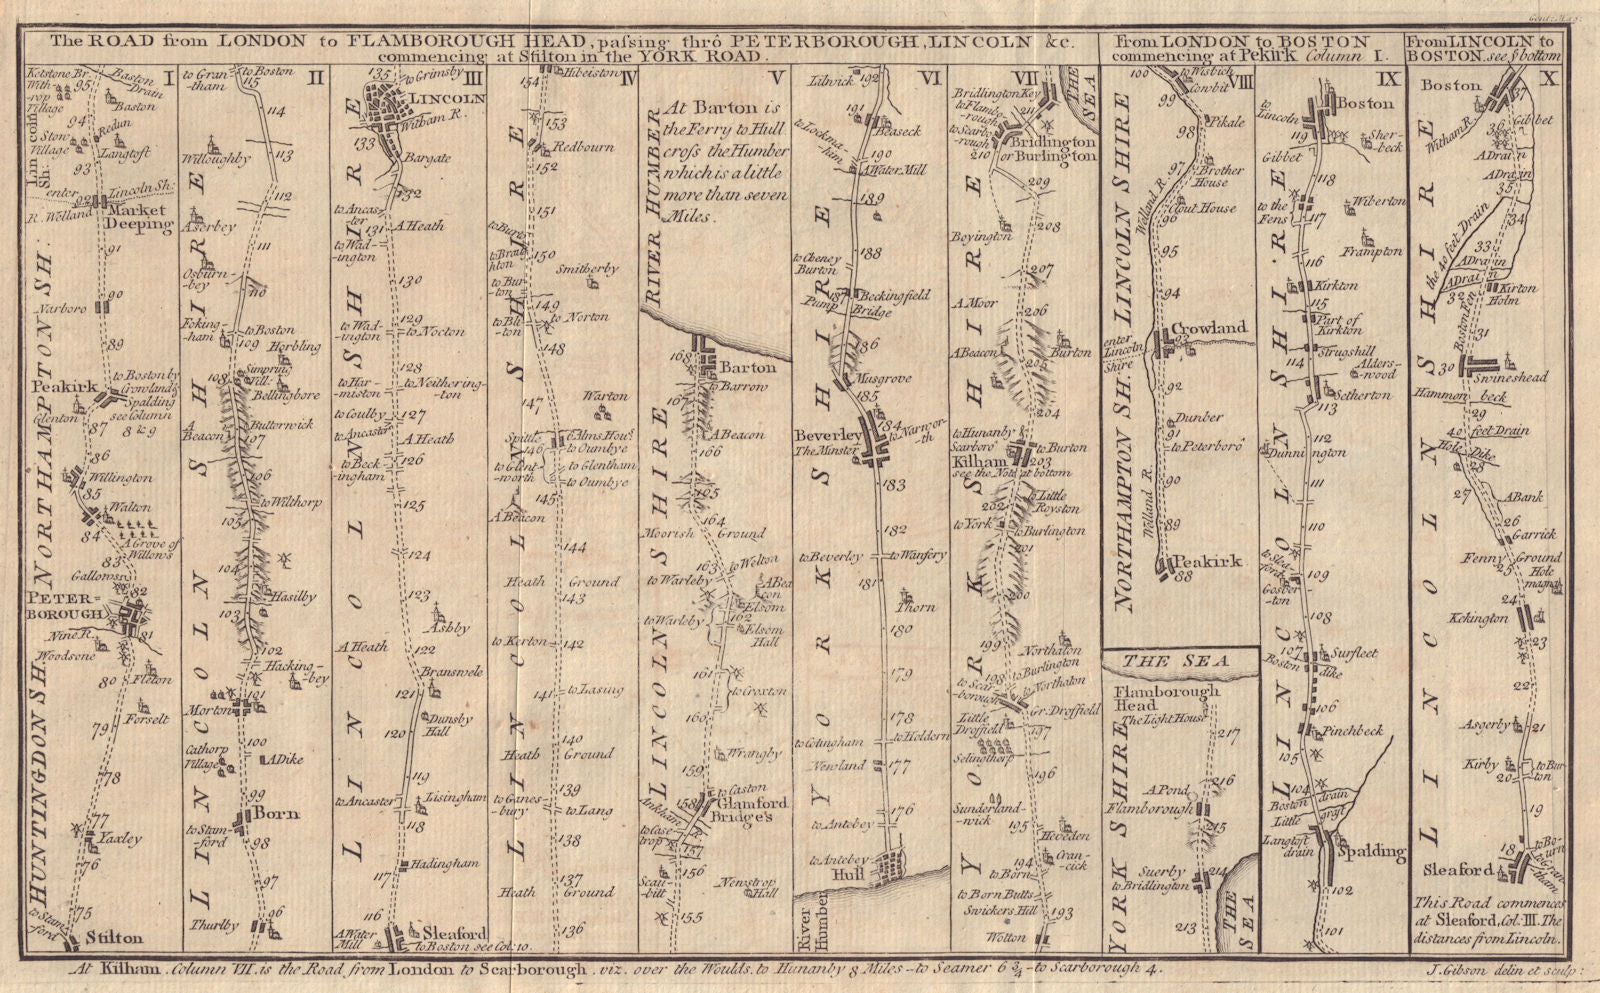 Gent: Mag:
The ROAD from LONDON to FLAMBOROUGH HEAD, passing thrô PETERBOROUGH, LINCOLN &c.
commencing at Stilton in the YORK ROAD.
From LONDON to BOSTON
commencing at Pekirk Column I.
From LINCOLN to
BOSTON. see ye bottom
I
Ketstone Br.
95
Baston
Drain
With-
rop
Village
Baston
94
Redun
Stow
Village
Langtoft
93
Lincoln
Sh:
enter
Lincoln Sh:
92
R. Welland
Market
Deeping
91
90
Narboro
89
Peakirk
to Boston by
Crowland &
Spalding
see Column
8 & 9
Glenton
87
86
Willington
85
Walton
84
A Grove of
Willows
83
Gallows
82
PETER-
BOROUGH
81
Nine R.
Woodsone
80
Fleton
Forselt
79
78
77
Yaxley
76
75
to Stam-
ford
Stilton
NORTHAMPTON SH:
HUNTINGDON SH.
II
to Gran-
tham
to Boston
115
114
Willoughby
113
112
Aserbey
111
Osburn-
bey
110
Foking-
ham
to Boston
109
Horbling
108
Bellingbore
A
Beacon
Butterwick
107
106
to Wilthorp
105
104
Hasilby
103
102
Hacking-
bey
101
Morton
100
Cathorp
Village
A Dike
99
Born
to Stam-
ford
98
97
96
Thurlby
LINCOLNSHIRE
III
135
to Grimsby
LINCOLN
Witham R.
133
Bargate
132
to Ancas-
ter
131
A Heath
to Wad-
ington
130
129
to Wad-
ington
to Nocton
128
to Har-
miston
to Neithering-
ton
to Coulby
127
to Ancaster
A Heath
to Beck-
ingham
126
125
124
123
Ashby
A Heath
122
Branswele
121
Dunsby
Hall
120
119
to Ancaster
Lisingham
118
Hadingham
117
116
A Water
Mill
Sleaford
to Boston see Col: 10.
LINCOLNSHIRE
IV
Hibeiston
153
Redbourn
152
151
150
Smitherby
149
to Norton
148
147
Warton
Spittle
146
to Oumbye
to Glent-
worth
to Glentham
to Oumbye
145
A Beacon
144
Heath Ground
143
to Kerton
142
141
to Lasing
140
Heath Ground
139
to Ganes-
bury
to Lang
138
137
Heath Ground
136
LINCOLNSHIRE
V
At Barton is
the Ferry to Hull
cross the Humber
which is a little
more than seven
Miles.
RIVER HUMBER
168
Barton
to Barrow
167
A Beacon
166
165
164
Moorish Ground
163
to Welton
to Warleby
A Bea-
con
Elsom
to Warleby
162
Elsom
Hall
161
to Croxton
160
Wrangby
159
to Caston
158
Glamford
Bridge's
Ankham R.
to Case-
trop
157
156
155
LINCOLNSHIRE
VI
Lilwick
192
191
Beaseck
190
A Water Mill
189
188
to Cheney
Burton
187
Beckingfield
Pump
Bridge
186
Musgrove
185
184
to Narwor-
th
Beverley
The Minster
183
182
to Beverley
to Wanfery
181
Thorn
180
179
178
to Cotingham
to Holdorn
Newland
177
176
to Antebey
to Antebey
Hull
River
Humber
YORKSHIRE
VII
THE
SEA
Bridlington Key
to Flamb-
rough
211
to Scarbo-
rough
Bridlington
or Burlington
210
209
208
Boyington
207
A Moor
206
A Beacon
Burton
205
204
to Hunanby &
Scarboro
to Burton
Kilham
203
see the Note at bottom
to Little
Royston
202
to York
to Burlington
201
200
199
Northalon
to Burlington
198
to Northalon
to Scar-
borough
Gr: Droffield
Little
Droffield
197
Selingthorp
196
Sunderland-
wick
195
Heveden
Cran-
cick
194
to Born
to Born Butts
Swickers Hill
193
Wotton
YORKSHIRE
VIII
100
to Wisbich
Cowbit
99
Pikale
98
97
Brother
House
Welland R.
Clout House
96
95
94
Crowland
93
enter
Lincoln
Shire
92
Dunber
91
to Peterboro
90
Welland R.
89
Peakirk
88
LINCOLN SHIRE
NORTHAMPTON SH:
THE SEA
Flamborough
Head
The Light House
217
216
A Pond
Flamborough
215
Suerby
214
to Bridlington
213
THE
SEA
YORK SHIRE
IX
to
Lincoln
Boston
119
Sher-
beck
Gibbet
118
to the
Fens
Wiberton
117
Frampton
116
Kirkton
115
Part of
Kirkton
Strugshill
114
Alders-
wood
Setherton
113
112
Dunnington
111
110
to Slea-
ford
109
Gosber-
ton
108
107
Surfleet
Boston dike
106
Pinchbeck
105
104
Boston drain
Little
Langtoft
drain
Spalding
102
101
LINCOLNSHIRE
X
Boston
37
Witham R.
Gibbet
36
A Drain
A Drain
35
34
the 40 feet Drain
33
A Drain
A Drain
32
Kirton
Holm
Boston Fen
31
30
Swineshead
Hammon beck
29
40 feet Drain
Hole Dike
28
27
A Bank
26
Garrick
Fenny Ground
25
Hole
magna
24
Kekington
23
22
Asgerby
21
Kirby
to Bur-
ton
20
19
18
to Bo-
urn
Sleaford
to Gran-
tham
LINCOLNSHIRE
This Road commences
at Sleaford, Col: III. The
distances from Lincoln.
At Kilham. Column VII. is the Road from London to Scarborough. viz. over the Woulds. to Hunanby 8 Miles – to Seamer 6 3/4 – to Scarborough 4.
J. Gibson delin et sculp: